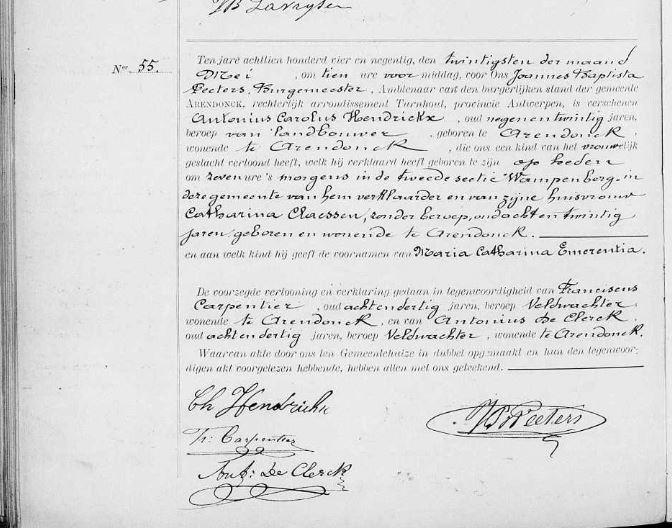 JB Lavrysen
Nr. 55.
Ten jare achttien honderd vier en negentig, den twintigsten der maand
Mei, om tien ure voor middag, voor Ons Joannes Baptista
Peeters, Burgemeester, Ambtenaar van den burgerlijken stand der gemeente
ARENDONCK, rechterlijk arrondissement Turnhout, provincie Antwerpen, is verschenen
Antonius Carolus Hendrickx, oud negenentwintig jaren,
beroep van landbouwer, geboren te Arendonck,
wonende te Arendonck, die ons een kind van het vrouwelijk
geslacht vertoond heeft, welk hij verklaard heeft geboren te zijn op heden
om zeven ure 's morgens in de tweede sectie Wampenberg in
deze gemeente van hem verklaarder en van zijne huisvrouw
Catharina Claessen, zonder beroep, oud acht en twintig
jaren, geboren en wonende te Arendonck.
en aan welk kind hij geeft de voornamen van Maria Catharina Emerentia.
De voorzegde vertooning en verklaring gedaan in tegenwoordigheid van Franciscus
Carpentier, oud achtendertig jaren, beroep Veldwachter,
wonende te Arendonck, en van Antonius De Clerck,
oud achtendertig jaren, beroep Veldwachter, wonende te Arendonck.
Waarvan akte door ons ten Gemeentehuize in dubbel opgemaakt en hun den tegenwoor-
digen akt voorgelezen hebbende, hebben allen met ons geteekend.
Ch Hendrickx
JB Peeters
Fr: Carpentier
Ant: De Clerck